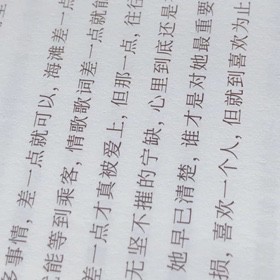 多事情，差一点就可以，海滩差一点
能等到乘客，情歌歌词差一点就能
差一点才真被爱上，但那一点，往
无坚不摧的宁缺，心里到底还是
她早已清楚，谁才是对她最重要
损，喜欢一个人，但就到喜欢为止